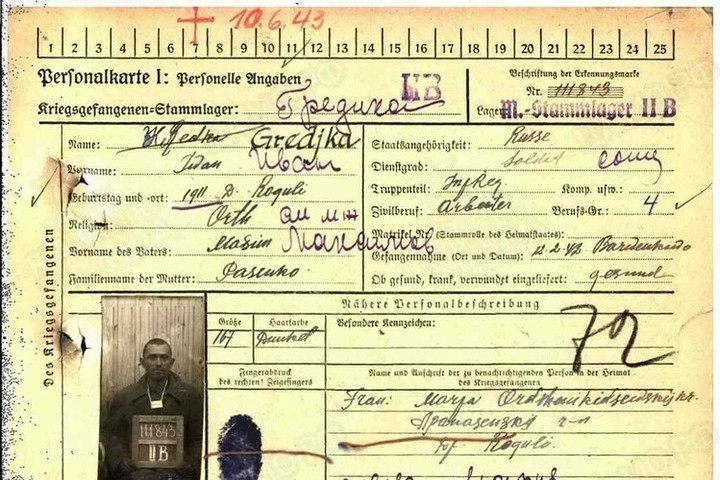 10.6.43
1 2 3 4 5 6 7 8 9 10 11 12 13 14 15 16 17 18 19 20 21 22 23 24 25
Personalkarte I: Personelle Angaben
II B
Beschriftung der Erkennungsmarke
Nr. 111843
Kriegsgefangenen-Stammlager: Гредика
Lager: M.-Stammlager II B
Name: Gredjka
Vorname: Iwan Иван
Geburtstag und -ort: 1911 Roguli
Religion: Orth
Vorname des Vaters: Maxim
Familienname der Mutter: Pasenko
Staatsangehörigkeit: Russe
Dienstgrad: Soldat солд
Truppenteil: Inf Reg Komp. usw.:
Zivilberuf: Arbeiter Berufs-Gr.: 4
Matrikel Nr. (Stammrolle des Heimatstaates):
Gefangennahme (Ort und Datum): 12.2.42
Ob gesund, krank, verwundet eingeliefert: gesund
Des Kriegsgefangenen
Nähere Personalbeschreibung
Größe Haarfarbe Besondere Kennzeichen:
167 Dunkel
72
Fingerabdruck
des rechten! Zeigefingers
Name und Anschrift der zu benachrichtigenden Person in der Heimat
des Kriegsgefangenen
Frau: Marja
Roguli
111843
II B